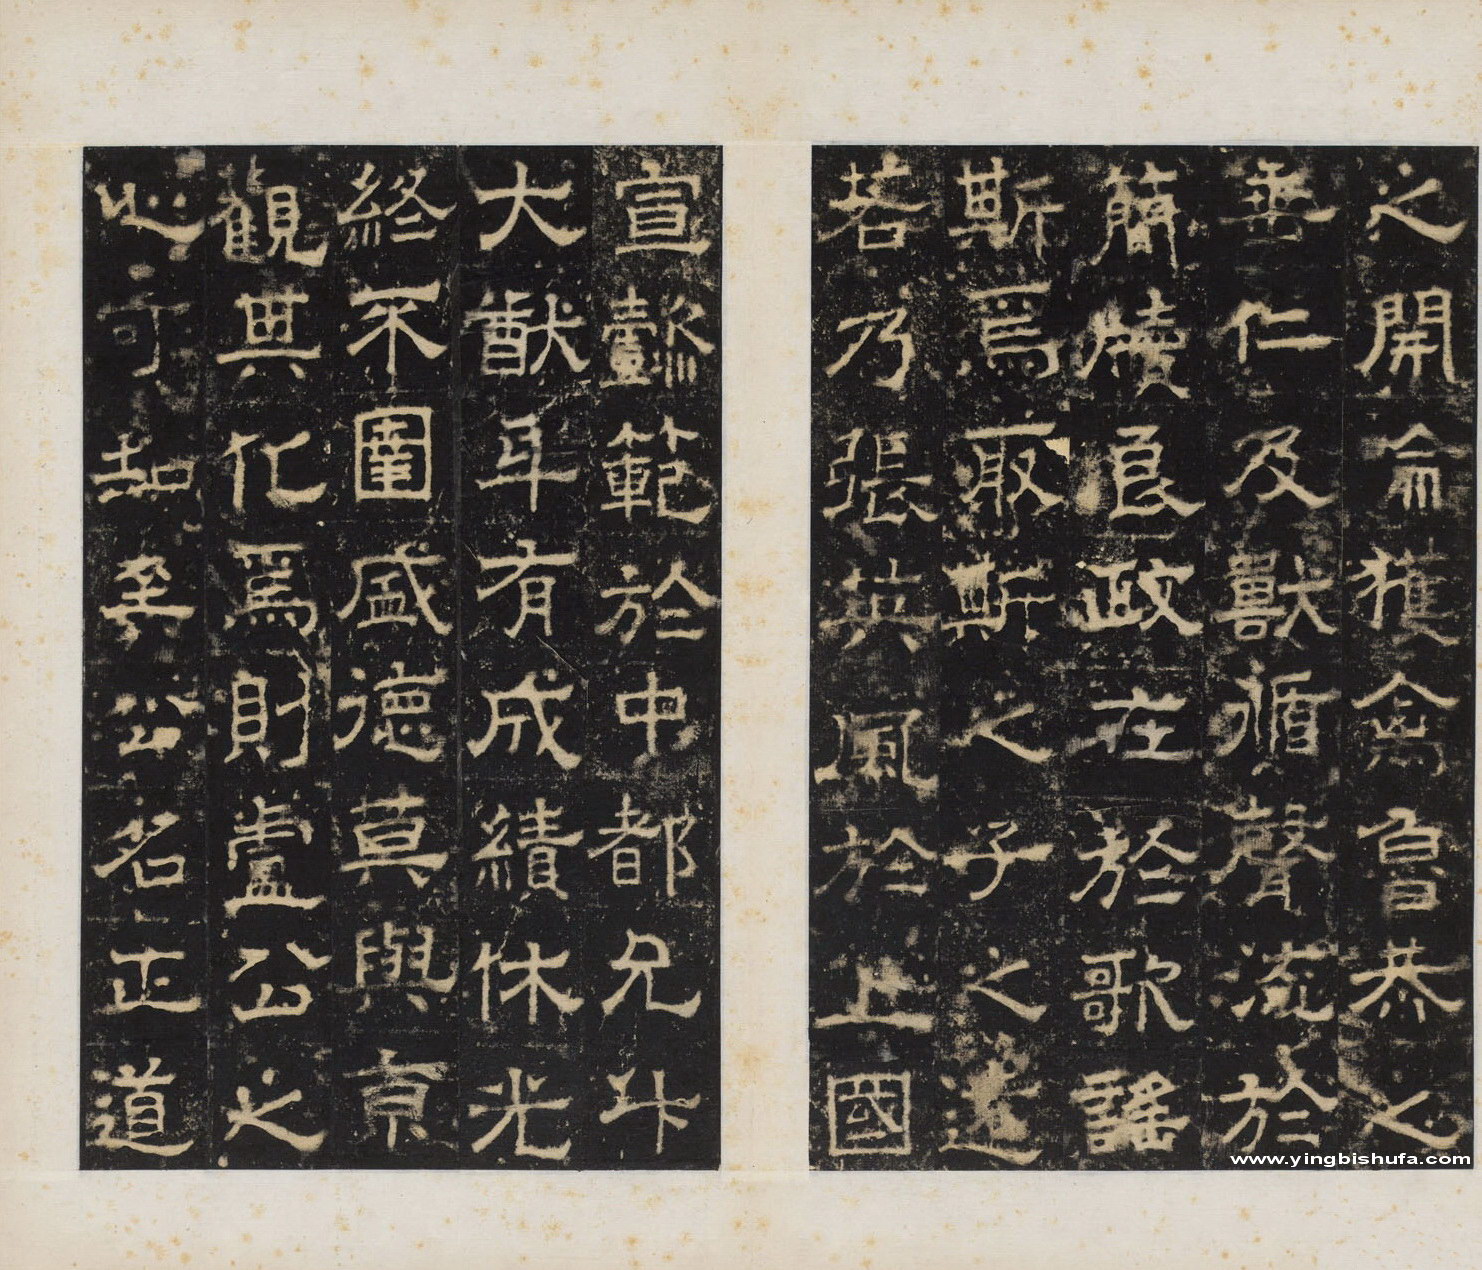 之開侖獲禽魯恭之
垂仁及獸循聲流於
簡牘良政在於歌謠
斯焉取斯之子之遠
若乃張英風於上國
宣懿範於中都兄升
大猷年有成績休光
終不圍盛德莫與京
觀其化爲則盧公之
心可知矣公名正道
www.yingbishufa.com